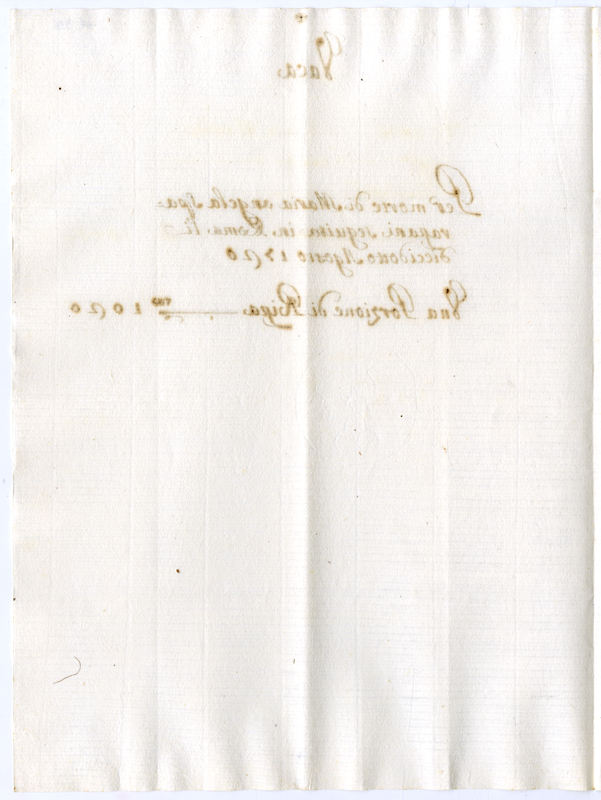 Vaca
Per morte di Maria angela Spa
ragani seguita in Roma li
dieciotto Agosto
Una Porzione di Riga